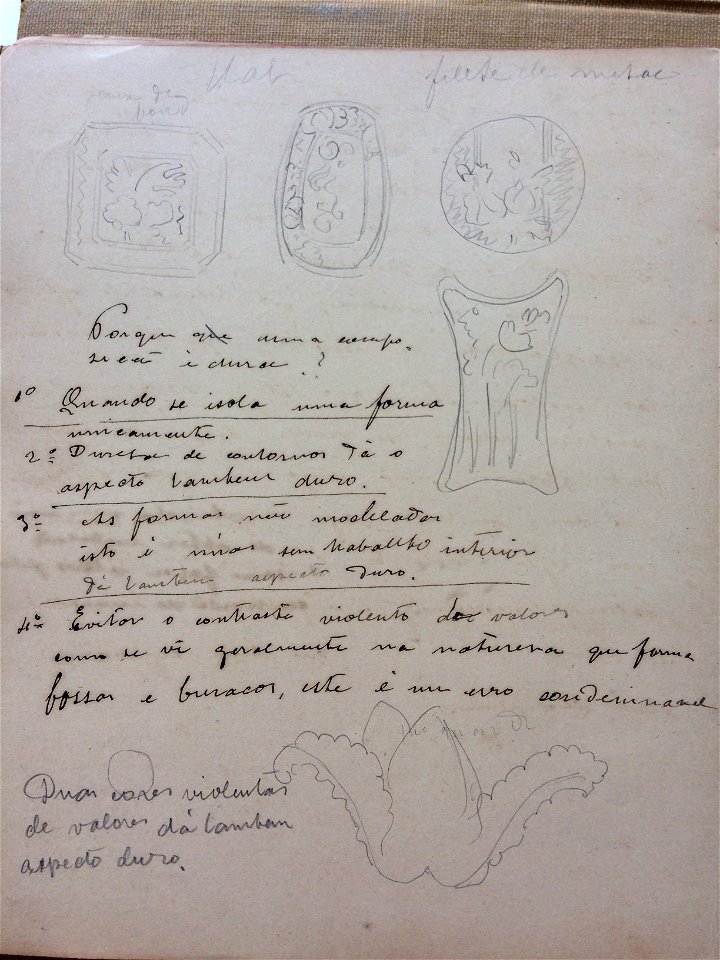 filete de metal
Porque que uma compo-
sicaõ è dura ?
1º Quando se isola uma forma
unicamente.
2º Dureza de contornos dà o
aspecto tambem duro.
3º As formas não modeladas
isto è nuas sem trabalho interior
dá tambem aspecto duro.
4º Evitar o contraste violento de valores
como se vê geralmente na natureza que forma
fossas e buracos, este è um erro condemnavel
Duas cores violentas
de valores dá tambem
aspecto duro.